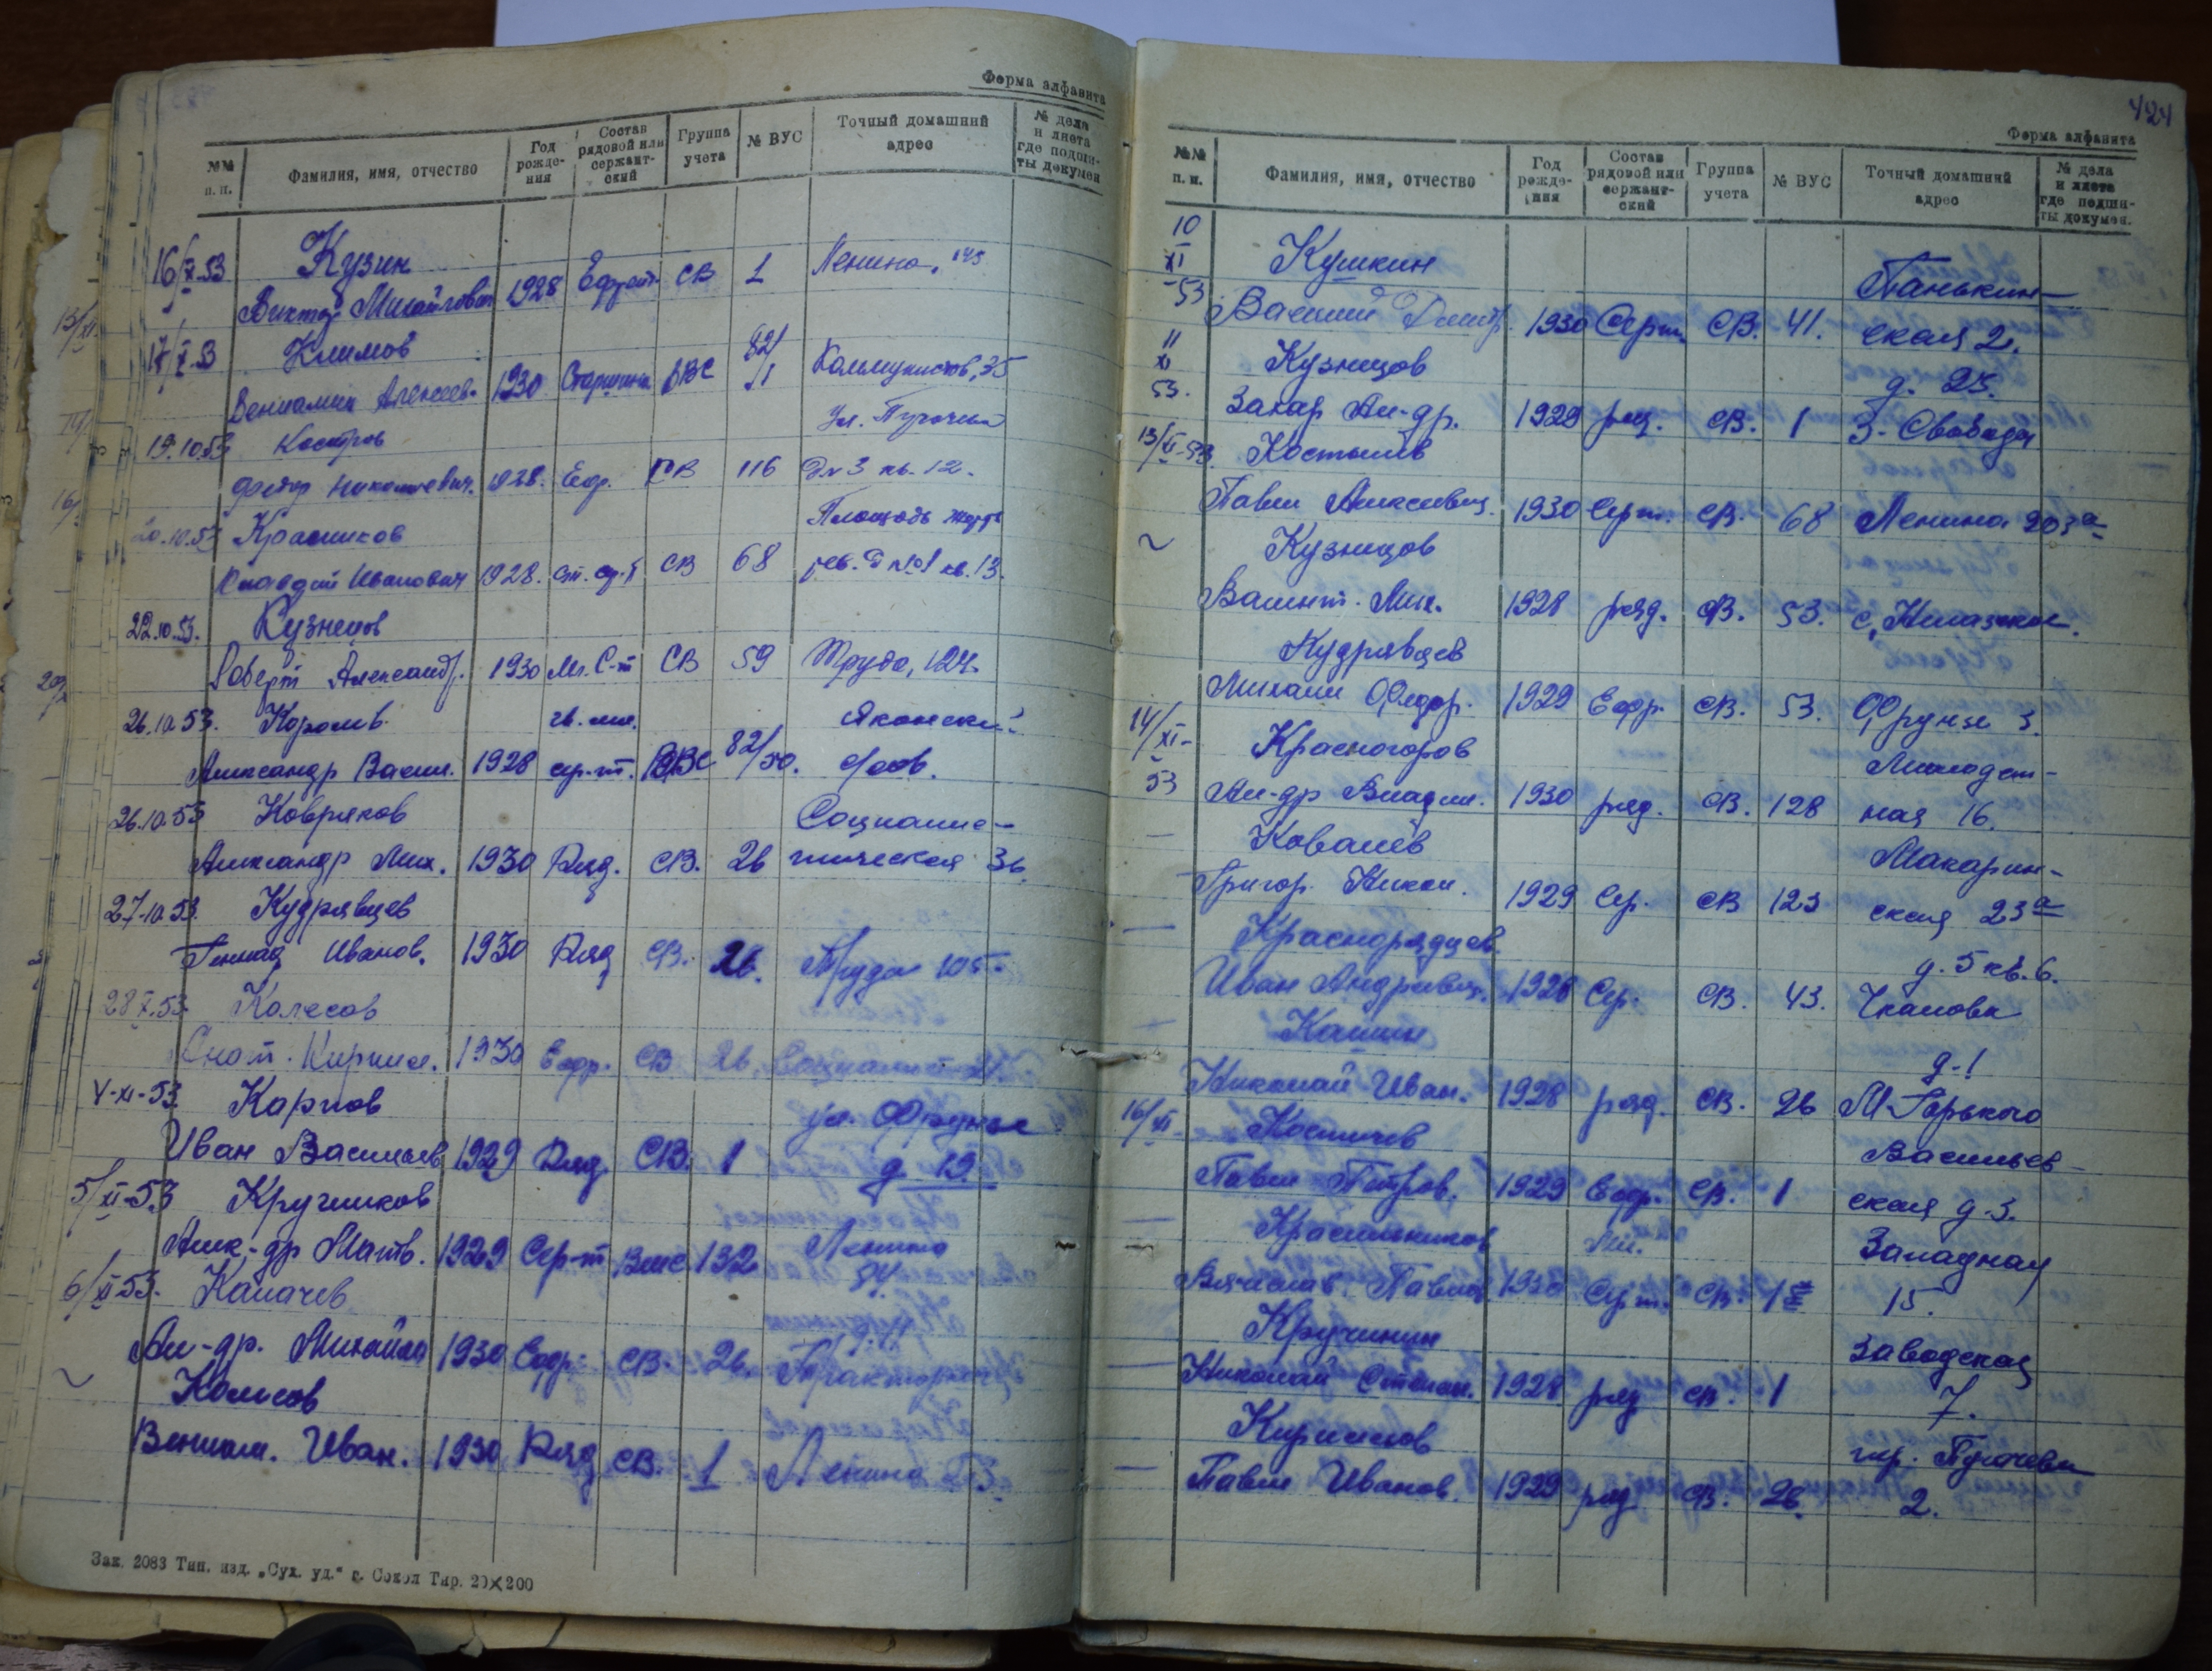 Форма алфавита
№№ п. п. Фамилия, имя, отчество Год рожде- ния Состав рядовой или сержант- ский Группа учета № ВУС Точный домашний адрес № дела и листа где подши- ты докумен
16/X-53 Кузин
Виктор Михайлович 1928 Ефрейт. СВ 1 Ленина, 143
17/X-53 Климов
Вениамин Алексеев. 1930 Старшина ВВС 82/11 Коммунистов, 35
19.10.53 Костров Ул.
Федор Николаевич. 1928. Ефр. СВ 116 Дом 3 кв. 12.
20.10.53 Красиков Площадь жертв
Клавдий Иванович 1928. ст. ср-т СВ 68 рев. Д №1 кв. 13.
22.10.53. Кузнецов
Роберт Александр. 1930 Мл. С-т СВ 59 Труда, 124.
26.10.53. Королев
Александр Васил. 1928 сер-т. ВВС 82/50.
26.10.53 Ковряков Социалис-
Александр Мих. 1930 Ряд. СВ. 26 тическая 36.
27.10.53. Кудрявцев
Геннад Иванов. 1930 Ряд СВ. 26. Труда 105.
28 X.53. Колесов
Кирилл. 1930 Ефр. СВ 26.
4-XI-53 Карпов ул. Фрунзе
Иван Васильев 1929 Ряд. СВ. 1 д. 19.
5/XI-53 Кручинков
Алек-др Матв. 1929 Сер-т 132 Ленина
84.
6/XI 53. Калачев
Ал-др. Михайл 1930 Ефр. СВ. 26. Тракторная
~ Колесов
Вениам. Иван. 1930 Ряд СВ. 1 Ленина
Зак. 2083 Тип. изд. „Сух. уд.“ г. Сокол Тир. 20×200
424
Форма алфавита
№№ п. п. Фамилия, имя, отчество Год рожде- ния Состав рядовой или сержант- ский Группа учета № ВУС Точный домашний адрес № дела и листа где подши- ты докумен.
10
XI Кушкин Панькин-
53 Василий Дмитр. 1930 Серж. СВ. 41. ская 2.
11
XI Кузнецов д. 23.
53. Захар Ал-др. 1929 ряд. СВ. 1 3- Свобода
13/XI-53. Костылев
Павел Алексеевич. 1930 Серж. СВ. 68 Ленина 203а
~ Кузнецов
Валент. Мих. 1928 ряд. СВ. 53.
Кудрявцев
Михаил Федор. 1929 Ефр. СВ. 53. Фрунзе 3.
14/XI- Красногоров Молодеж-
53 Ал-др Владим. 1930 ряд. СВ. 128 ная 16.
— Ковалёв Макарин-
Григор. Никол. 1929 Сер. СВ 123 ская 23а
— Краснорядцев д. 5 кв. 6.
Иван Андреевич. 1928 Сер. СВ. 43. Чкалова
— Кашин д-1
Николай Иван. 1928 ряд. СВ. 26 М-Горького
16/XI Костичев Васильев-
Павел Петров. 1929 Ефр. СВ. 1 ская д-3.
— Красильников Мл. Западная
Вячеслав. Павлов 1930 Сер-т. СВ. 15.
Кручинин Заводская
— Николай Степан. 1928 ряд СВ. 1 7.
Кириллов пер. Пугачева
— Павел Иванов. 1929 ряд СВ. 26. 2.